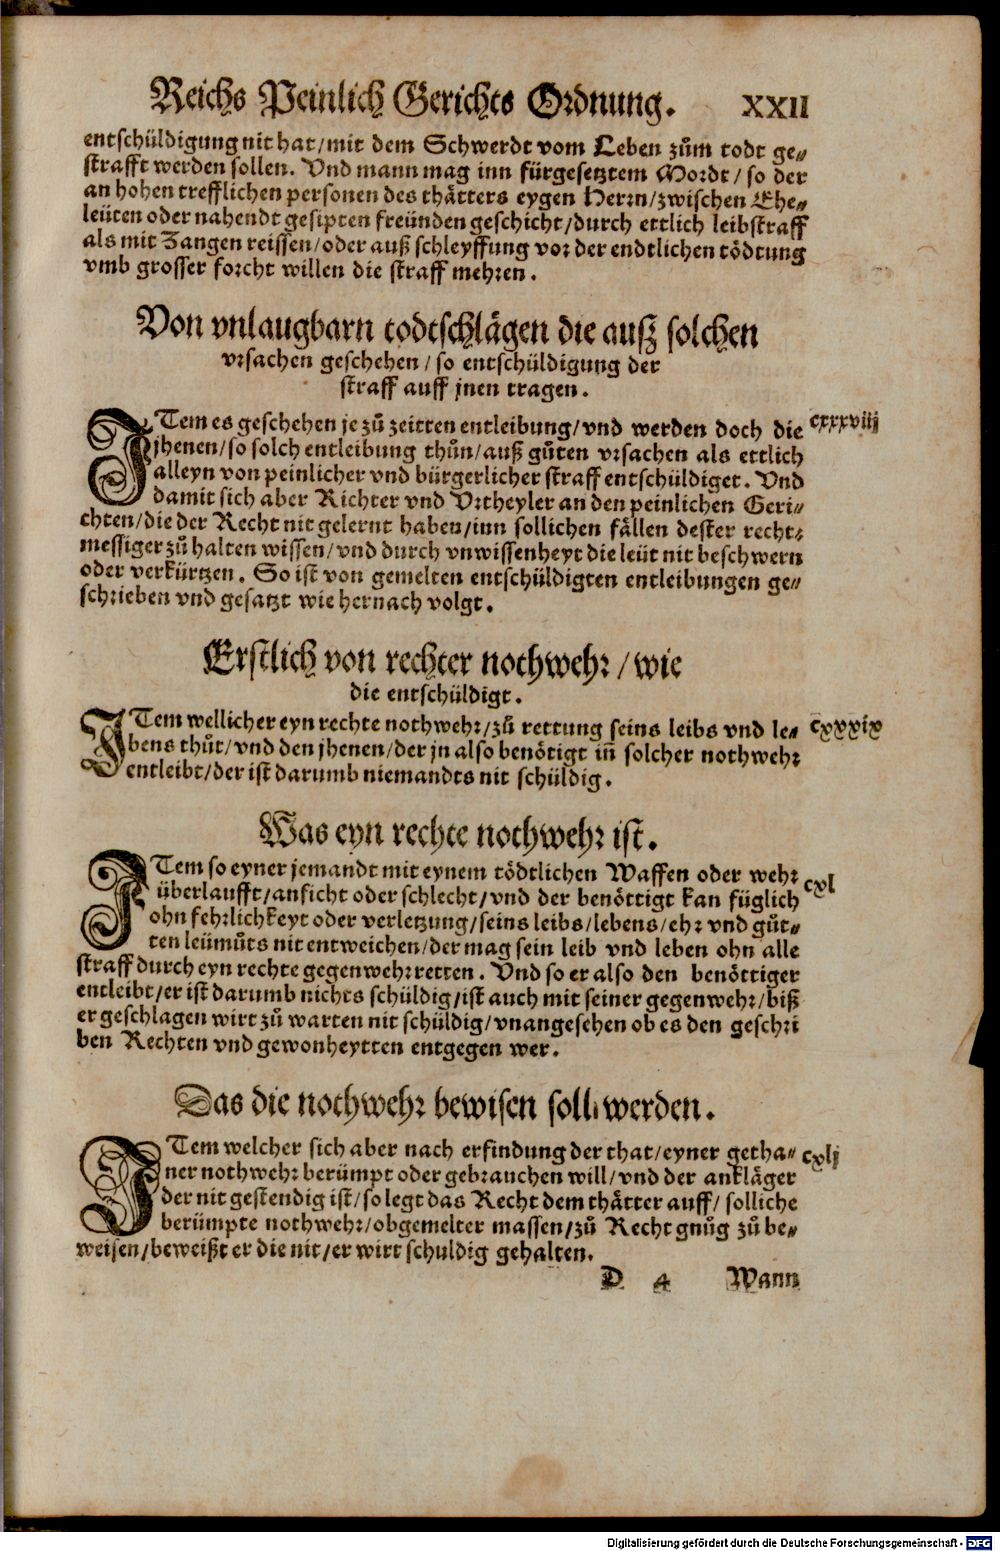 Reichs Peinlich Gerichts Ordnung. XXII
entschüldigung nit hat/mit dem Schwerdt vom Leben zům todt ge⸗
strafft werden sollen. Vnd mann mag inn fürgesetztem Mordt/so der
an hohen trefflichen personen des thätters eygen Herrn/zwischen Ehe⸗
leüten oder nahendt gesipten freünden geschicht/durch ettlich leibstraff
als mit Zangen reissen/oder auß schleyffung vor der endtlichen tödtung
vmb grosser forcht willen die straff mehren.
Von vnlaugbarn todtschlägen die auß solchen
vrsachen geschehen/so entschüldigung der
straff auff jnen tragen.
ITem es geschehen je zů zeitten entleibung/vnd werden doch die cxxxviij
jhenen/so solch entleibung thůn/auß gůten vrsachen als ettlich
alleyn von peinlicher vnd bürgerlicher straff entschüldiget. Vnd
damit sich aber Richter vnd Vrtheyler an den peinlichen Geri⸗
chten/die der Recht nit gelernt haben/inn sollichen fällen dester recht⸗
messiger zů halten wissen/vnd durch vnwissenheyt die leüt nit beschwern
oder verkürtzen. So ist von gemelten entschüldigten entleibungen ge⸗
schrieben vnd gesatzt wie hernach volgt.
Erstlich von rechter nothwehr/wie
die entschüldigt.
ITem wellicher eyn rechte nothwehr/zů rettung seins leibs vnd le⸗ cxxxix
bens thůt/vnd den jhenen/der jn also benötigt iñ solcher nothwehr
entleibt/der ist darumb niemandts nit schüldig.
Was eyn rechte nothwehr ist.
ITem so eyner jemandt mit eynem tödtlichen Waffen oder wehr cxl
überlaufft/anficht oder schlecht/vnd der benöttigt kan füglich
ohn fehrlichkeyt oder verletzung/seins leibs/lebens/ehr vnd gůt⸗
ten leümůts nit entweichen/der mag sein leib vnd leben ohn alle
straff durch eyn rechte gegenwehr retten. Vnd so er also den benöttiger
entleibt/er ist darumb nichts schüldig/ist auch mit seiner gegenwehr/biß
er geschlagen wirt zů warten nit schüldig/vnangesehen ob es den geschri
ben Rechten vnd gewonheytten entgegen wer.
Das die nothwehr bewisen soll werden.
ITem welcher sich aber nach erfindung der that/eyner getha⸗ cxlj
ner nothwehr berümpt oder gebrauchen will/vnd der ankläger
der nit gestendig ist/so legt das Recht dem thätter auff/solliche
berümpte nothwehr/obgemelter massen/zů Recht gnůg zů be⸗
weisen/beweißt er die nit/er wirt schuldig gehalten.
D 4 Wann
Digitalisierung gefördert durch die Deutsche Forschungsgemeinschaft - DFG